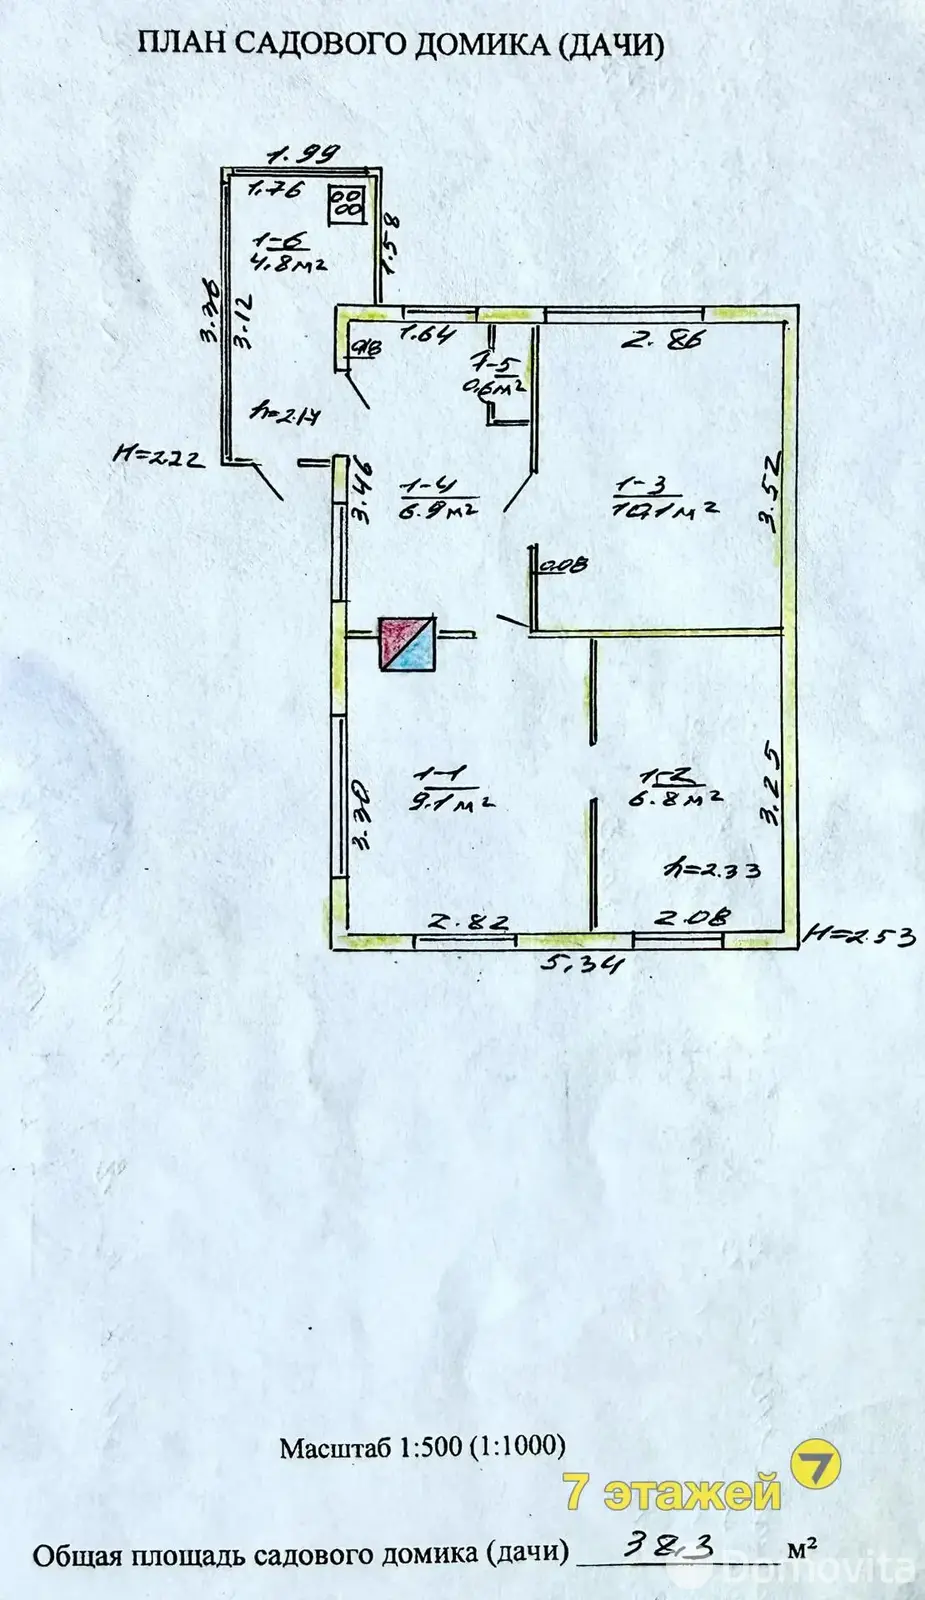 ПЛАН САДОВОГО ДОМИКА (ДАЧИ)
1.99
1.76
1-6
4.8 м²
1.58
3.36
3.12
1.64
2.86
1-5
0.6 м²
h=2.14
H=2.22
3.46
1-4
6.9 м²
1-3
10,1 м²
3.52
0.08
1-1
9.1 м²
1-2
6.8 м²
3.30
3.25
h=2.33
2.82
2.08
H=2.53
5,34
Масштаб 1:500 (1:1000)
7 этажей 7
Общая площадь садового домика (дачи) 38,3 м²
Domovita